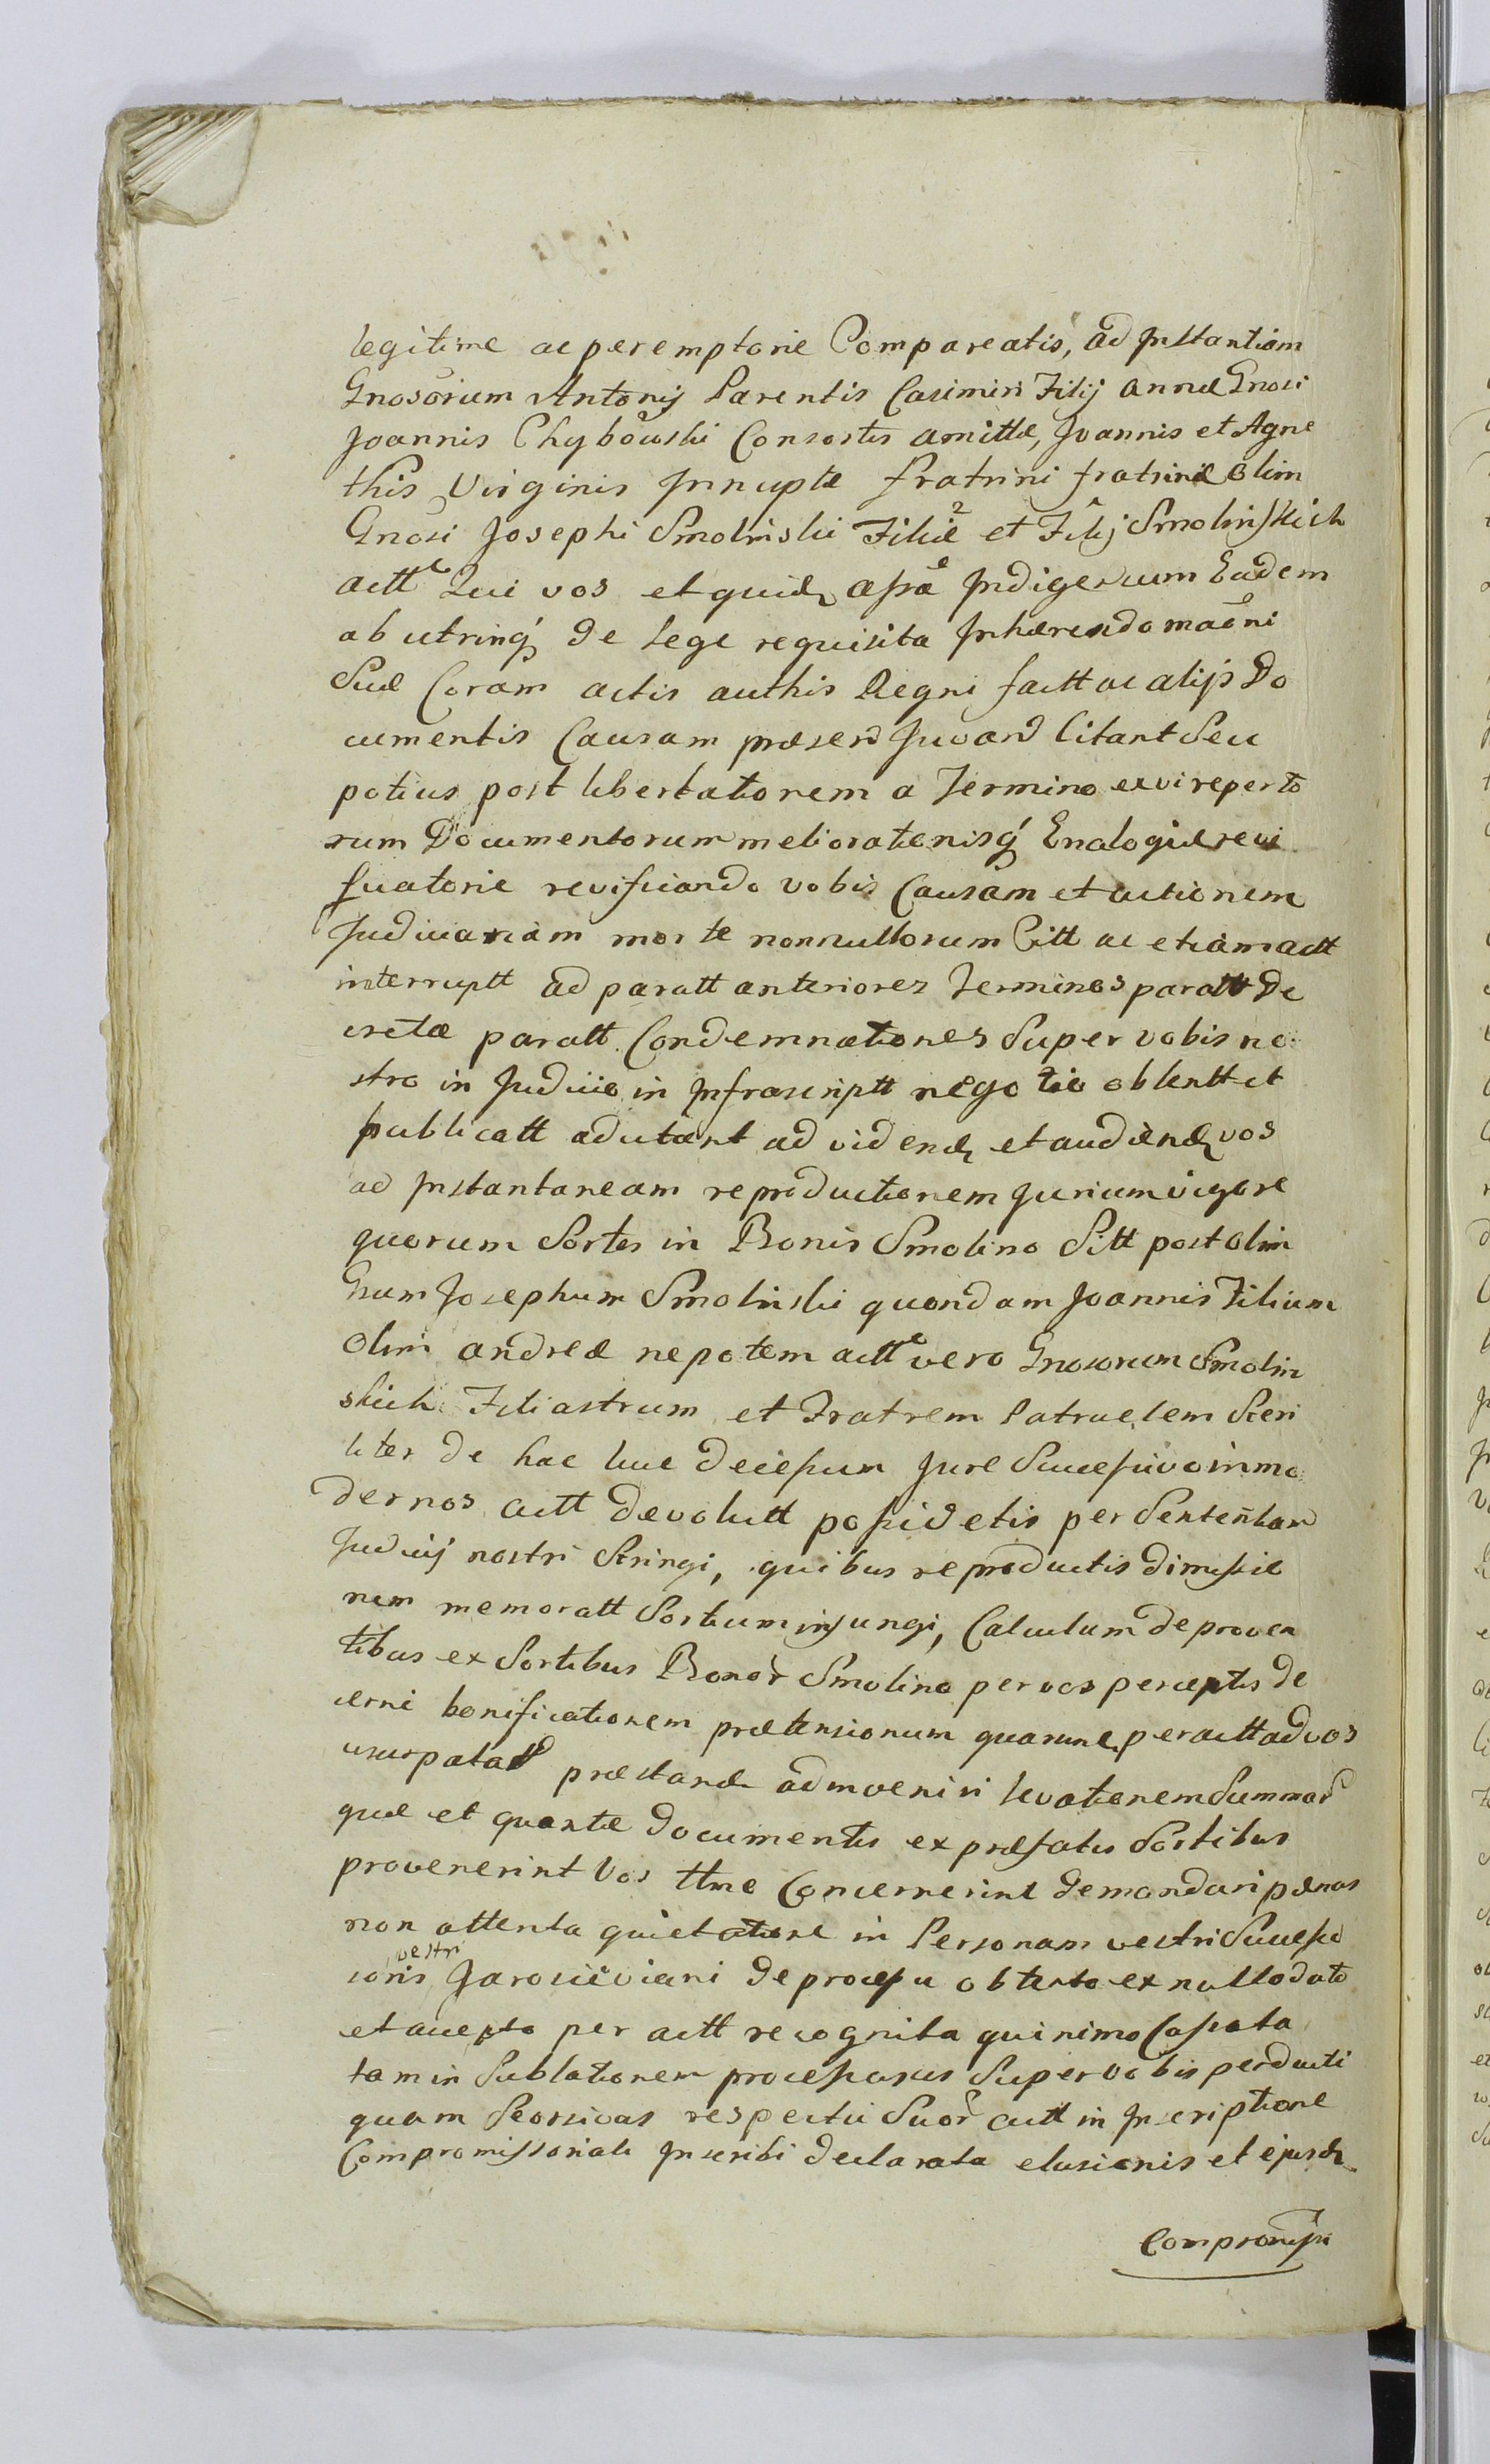 legitime ac peremptorie Compareatis, ad Instantiam
Gnosorum Antonij Parentis Casimiri Filij Annæ Gnosi
Joannis Chybowski Consortis amittæ, Joannis et Agne
this Virginis Innuptæ fratrini fratrinæ olim
Gnosi Josephi Smolinski Filiæ 2 et Filij Smolinskich
actt Qui vos et quidem Indigen cum Eadem
ab utrinq de lege requisita Inhærendo maõni
Suæ Coram actis authis Regni factt ac alijs Do
cumentis Causam præsen Juvand Citant Seu
potius post libertationem a Termino ex vi reperto
rum Documentorum meliorationisq Enalogiæ revi
ficatorie revificando vobis Causam et actionem
Judiciariam morte nonnullorum Citt ac etiam actt
interruptt ad paratt anteriores Terminos paratt De
creta paratt Condemnationes Super vobis no
stro in Judicio in Infrascriptt negotio obtentt et
publicatt adcitant ad videnđ et audienđ vos
ad Instantaneam reproductionem Jurium vigore
quorum Sortes in Bonis Smolino Sitt post olim
Gsum Josephum Smolinski quondam Joannis Filium
Olim andreæ nepotem actt vero Gnosorum Smolin
skich Filiastrum et Fratrem Patruelem Steri
liter de hac luce decessum Jure Successivo in mo
dernos actt devolutt possidetis per Sententiam
Judicij nostri Stringi, quibus reproductis dimissio
nem memoratt Sortium injungi, Calculum de proven
tibus ex Sortibus Bonor Smolino per vos perceptis de
cerni bonificationem prætensionum quarunc per actt ad vos
usurpatas præstand adinveniri levationem Summar
quæ et quantæ documentis ex præfatis Sortibus
provenerint Vos ttme Concernerint demandari pænas
non attenta quietatione in Personam vestri Successo
vestri
soris Jarosieviani de processu obtento ex nullo dato
et accepto per actt recognita quinimo Cassata
tam in Sublationem processus Super vobis perducti
quam Seorsivas respectu Suor actt in Inscriptione
Compromissoriali Inscribi declarata elusionis et ejusđ
Compromissi